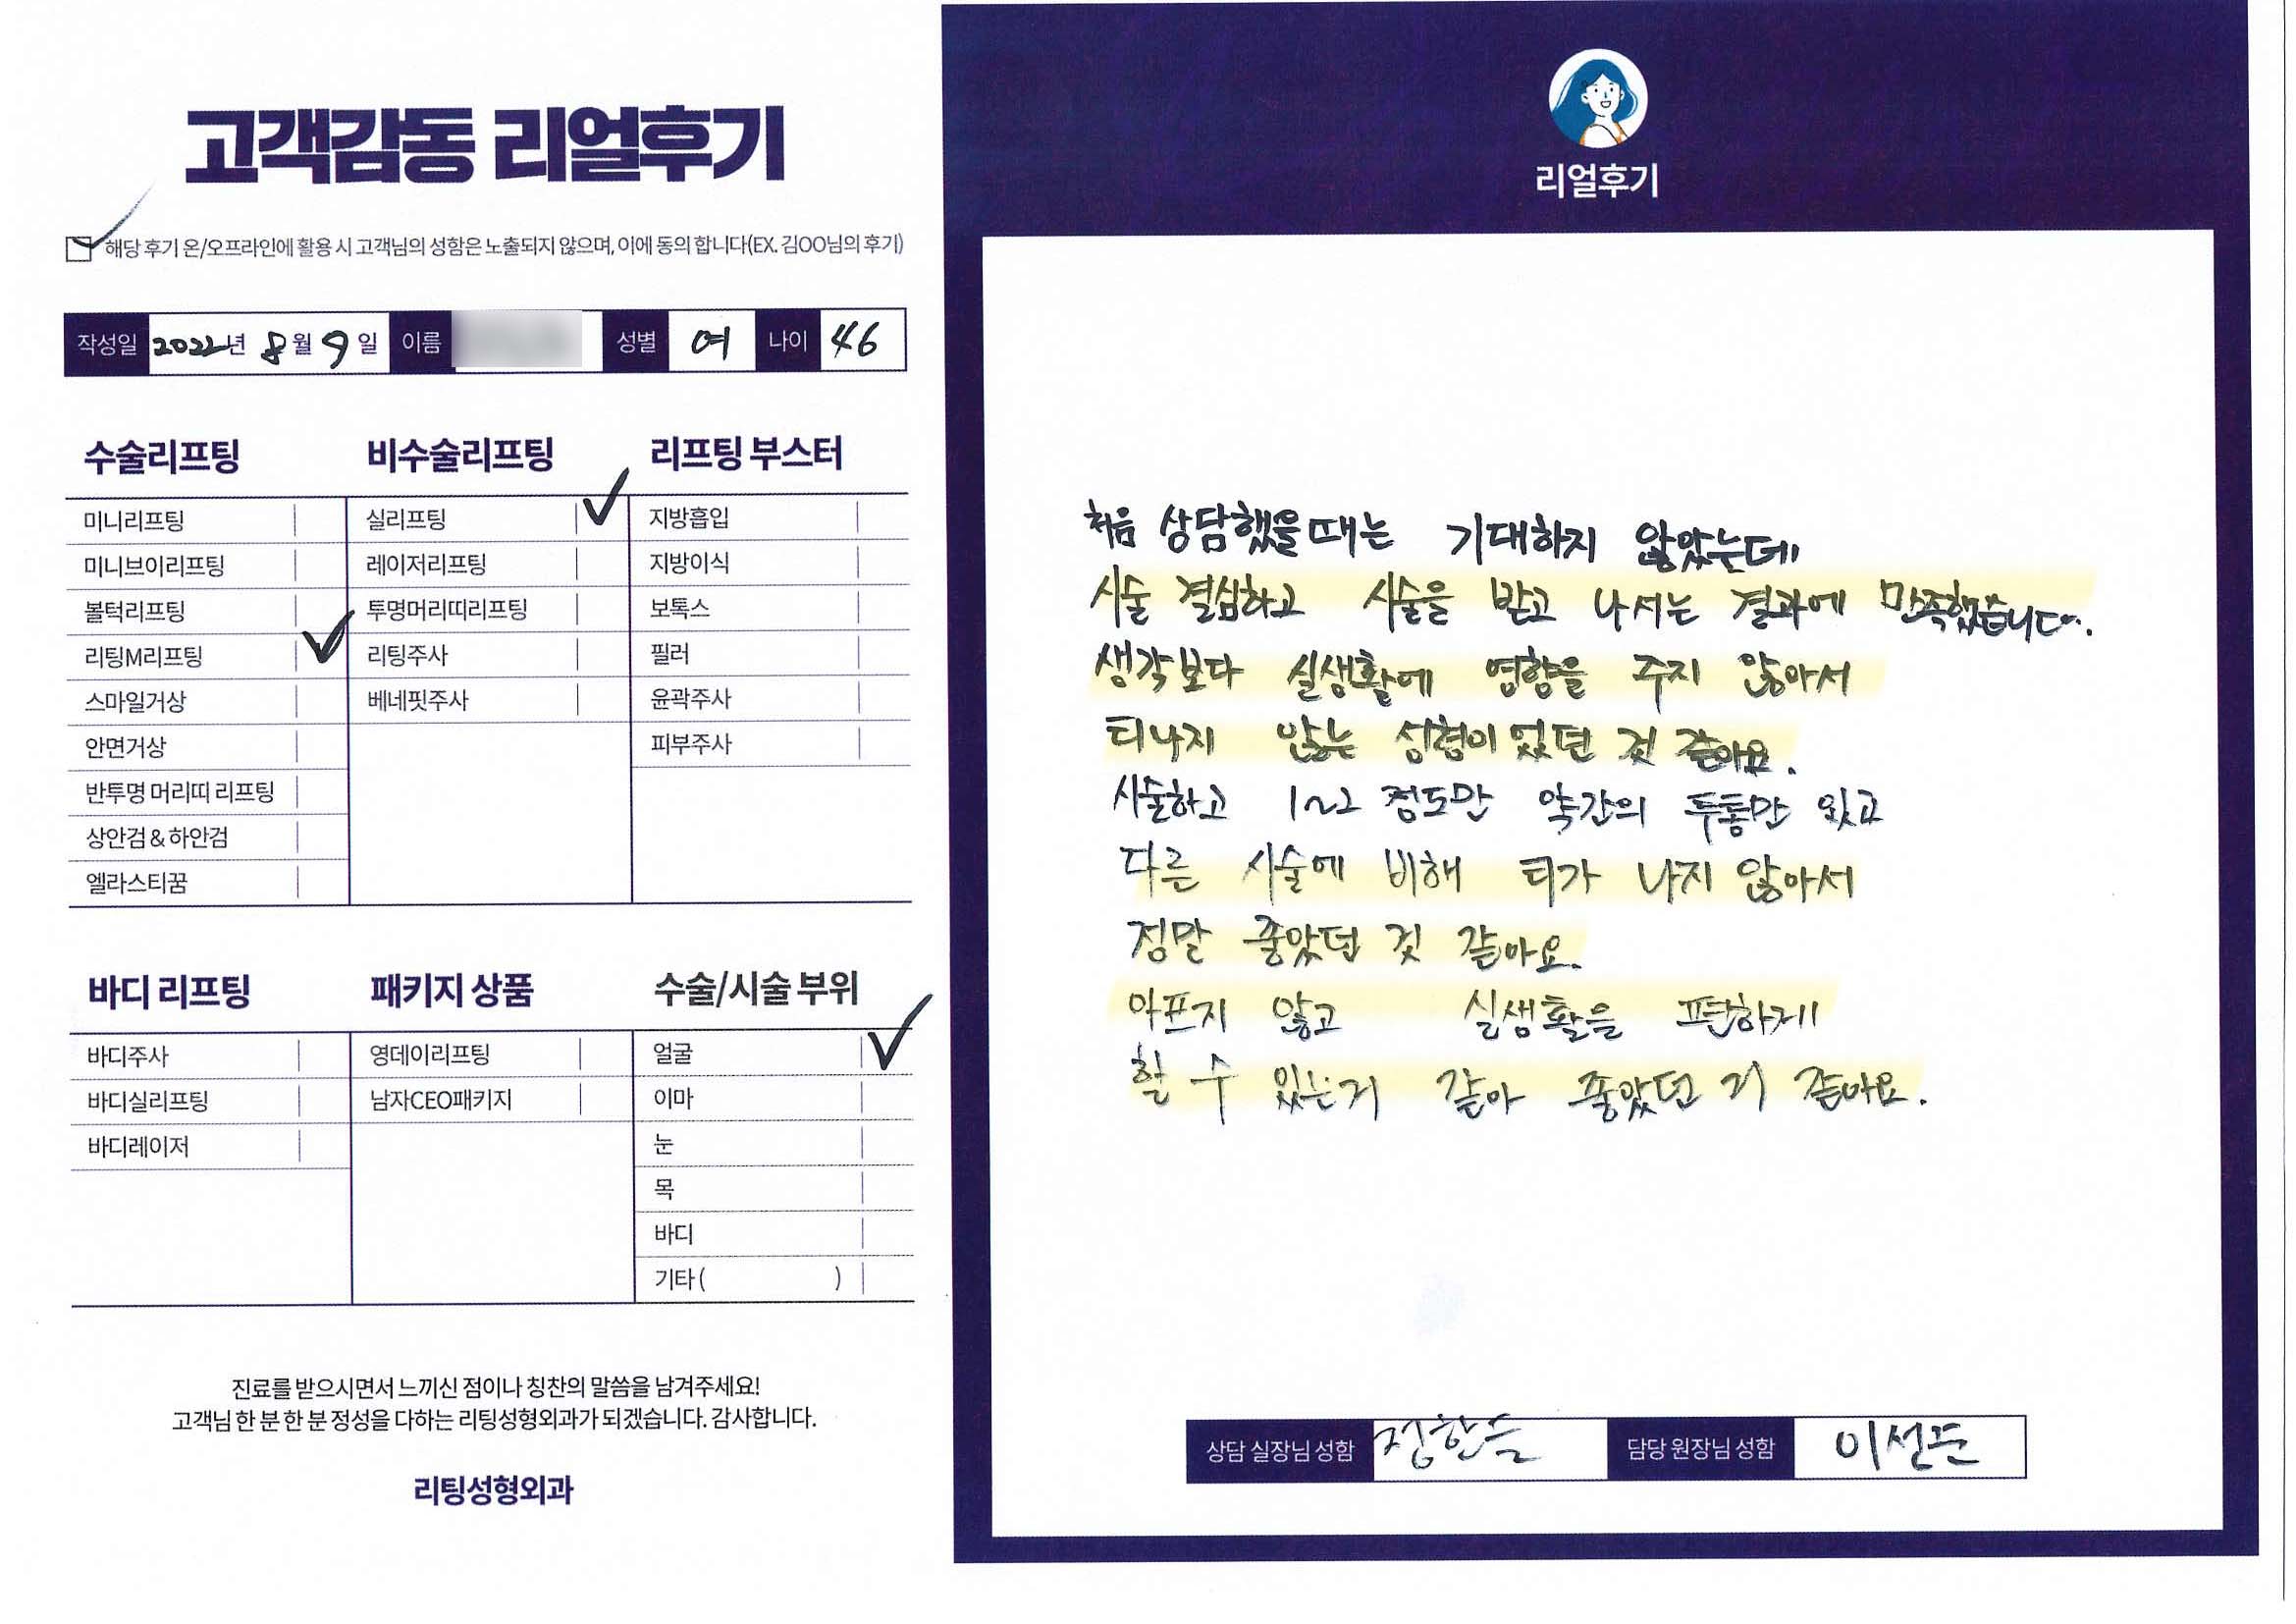 고객감동 리얼후기
해당 후기 온/오프라인에 활용 시 고객님의 성함은 노출되지 않으며, 이에 동의 합니다(EX. 김OO님의 후기)
작성일 2022년 8월 9일 이름 성별 여 나이 46
수술리프팅
미니리프팅
미니브이리프팅
볼턱리프팅
리팅M리프팅
스마일거상
안면거상
반투명 머리띠 리프팅
상안검 & 하안검
엘라스티꿈
비수술리프팅
실리프팅
레이저리프팅
투명머리띠리프팅
리팅주사
베네핏주사
리프팅 부스터
지방흡입
지방이식
보톡스
필러
윤곽주사
피부주사
바디 리프팅
바디주사
바디실리프팅
바디레이저
패키지 상품
영데이리프팅
남자CEO패키지
수술/시술 부위
얼굴
이마
눈
목
바디
기타 ( )
진료를 받으시면서 느끼신 점이나 칭찬의 말씀을 남겨주세요!
고객님 한 분 한 분 정성을 다하는 리팅성형외과가 되겠습니다. 감사합니다.
리팅성형외과
리얼후기
처음 상담했을때는 기대하지 않았는데
시술 결심하고 시술을 받고 나서는 결과에 만족했습니다.
생각보다 실생활에 영향을 주지 않아서
티나지 않는 성형이었던 것 같아요.
시술하고 1~2 정도만 약간의 두통만 있고
다른 시술에 비해 티가 나지 않아서
정말 좋았던 것 같아요.
아프지 않고 실생활을 편하게
할 수 있는거 같아 좋았던 거 같아요.
상담 실장님 성함 정한들 담당 원장님 성함